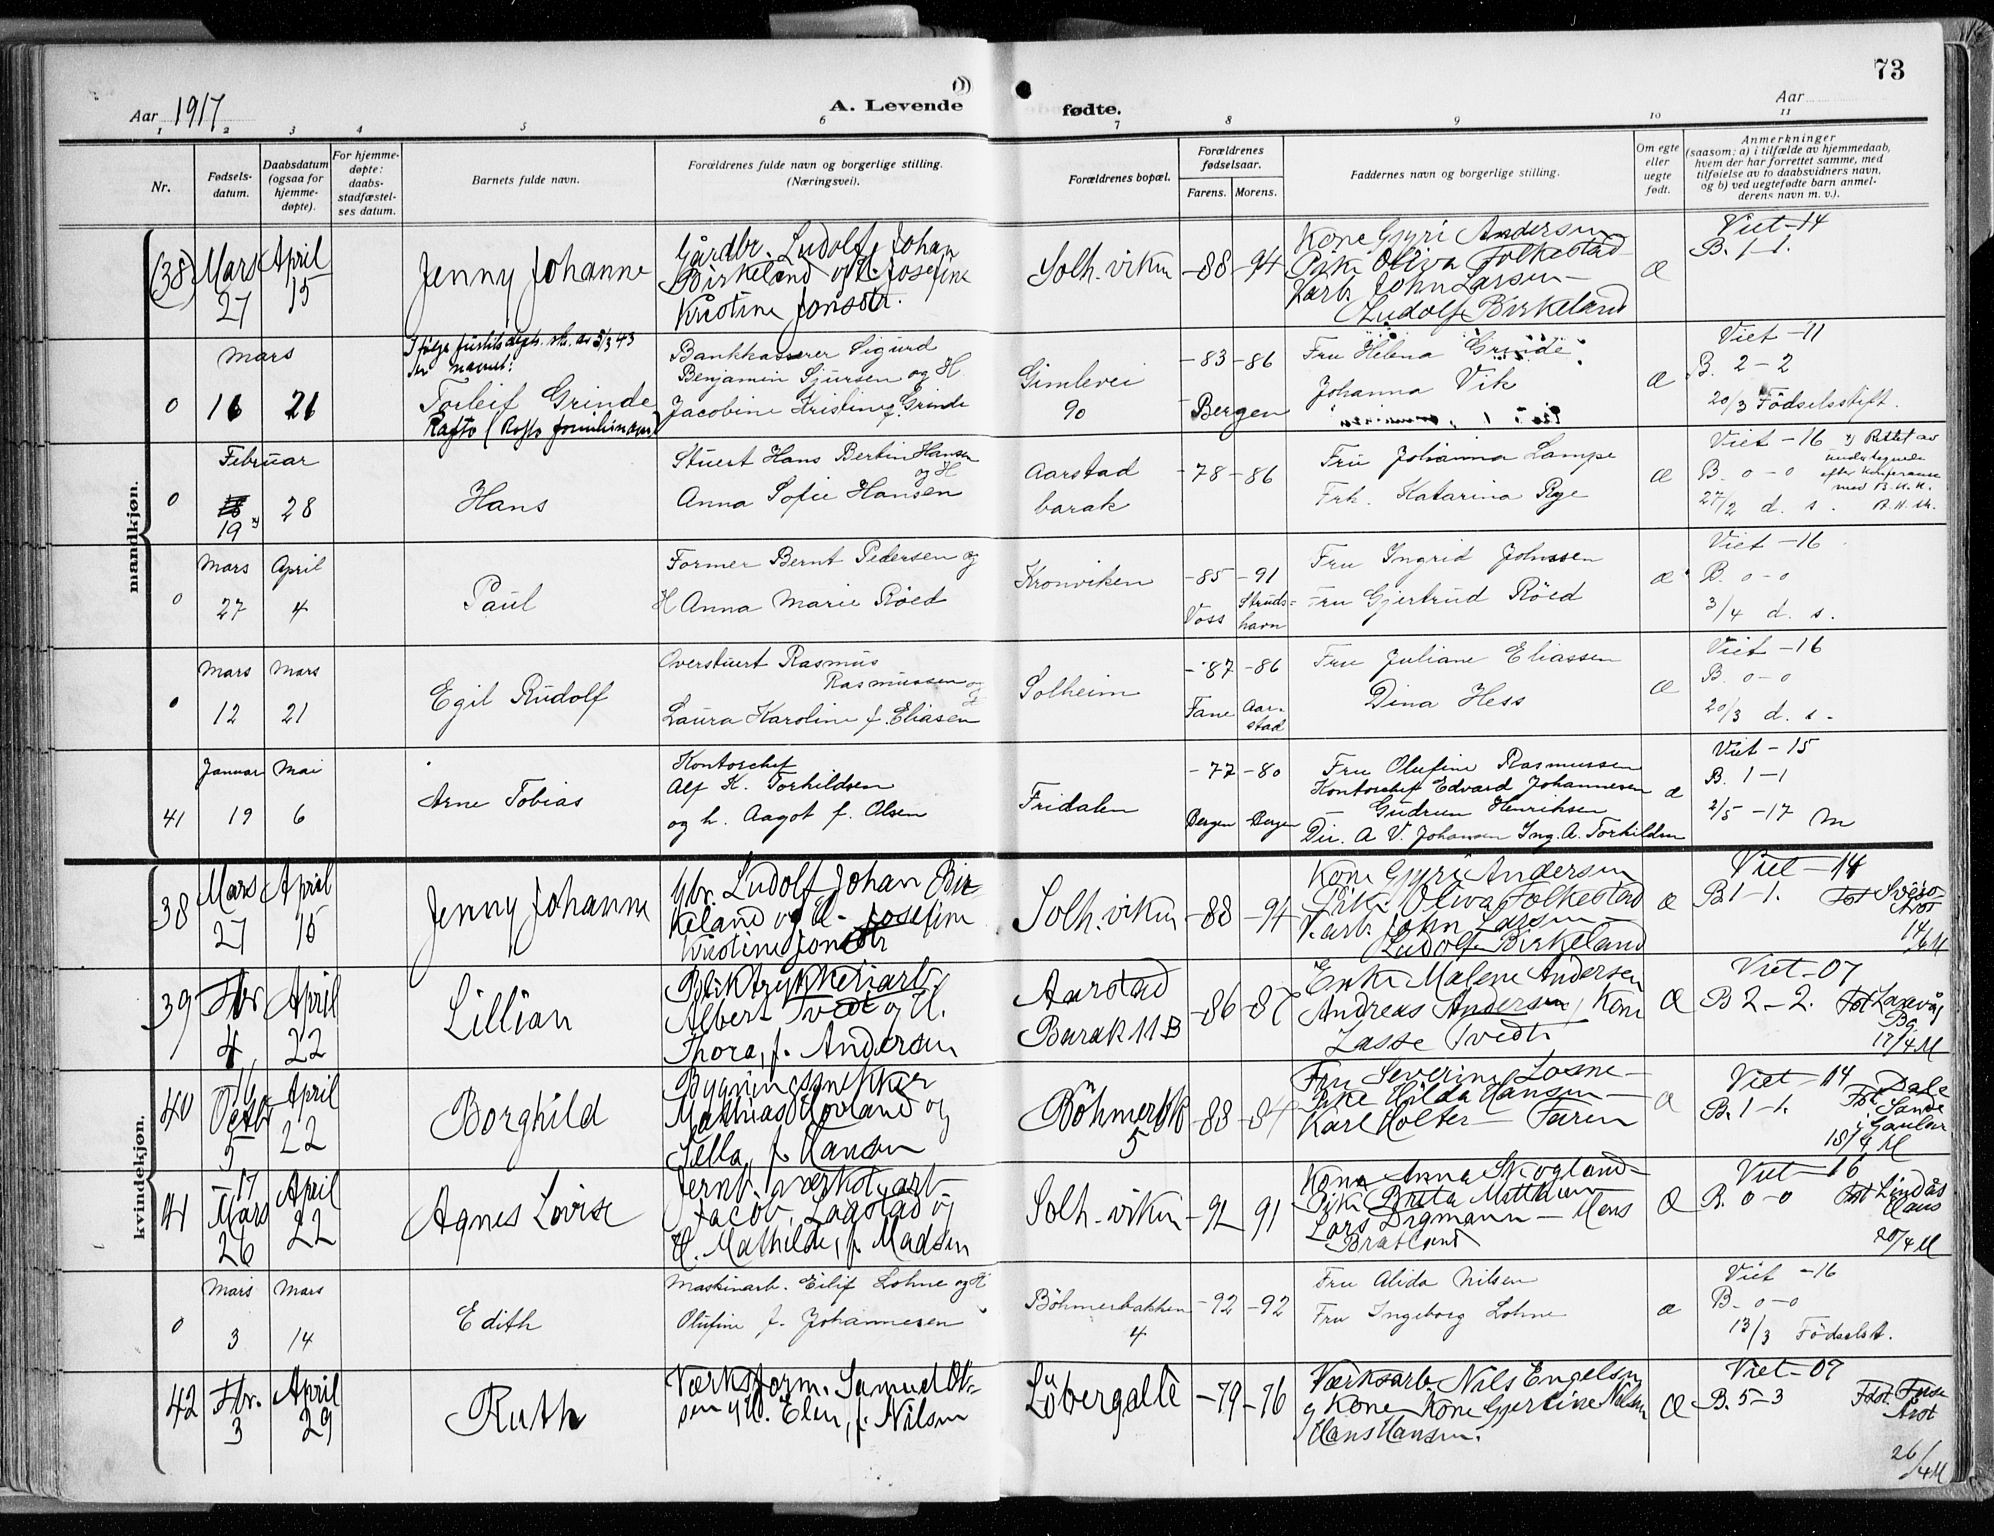 73
Aar 1917
A. Levende fødte.
Aar
1 2 3 4 5 6 7 8 9 10 11
Nr.
Fødsels-
datum.
Daabsdatum
(ogsaa for
hjemme-
døpte).
For hjemme-
døpte:
daabs-
stadfæstel-
ses datum.
Barnets fulde navn.
Forældrenes fulde navn og borgerlige stilling.
(Næringsvei).
Forældrenes bopæl.
Forældrenes
fødselsaar.
Farens. Morens.
Faddernes navn og borgerlige stilling.
Om egte
eller
uegte
født.
Anmerkninger
(saasom: a) i tilfælde av hjemmedaab,
hvem der har forrettet samme, med
tilføielse av to daabsvidners navn,
og b) ved uegtefødte barn anmel-
derens navn m. v.).
mandkjøn.
(38) Mars 27
April 15
Jenny Johanne
Gårdbr. Ludolf Johan
Birkeland og H. Josefine
Kristine Jonsdtr.
Solh.viken
-88 -94
Kone Gyri Andersen
Pike Oliva Folkestad
Varb. John Larsen -
Ludolf Birkeland
æ
Viet -14
B. 1-1.
0
Mars
16 21
Ifølge justitsdepts. skr. av 5/3 43
navnet:
Torleif Grinde
Rafto (Rafto familienavn)
Bankkasserer Sigurd
Benjamin Sjursen og H
Jacobine Kristine f. Grinde
Gimlevei
90
-83 -86
Bergen
Fru Helena Grinde
Johanna Vik
æ
Viet -11
B. 2-2
20/3 Födselsstift.
0
Februar
19 28
Hans
Stuert Hans Bertin Hansen
og H
Anna Sofie Hansen
Aarstad
barak
-78 -86
Fru Johanna Lampe
Frk. Katarina Rye
æ
Viet -16
B. 0-0
27/2 d. s.
Rettet av
undertegnede
efter konferanse
med B. K. K.
0
Mars 27
April 4
Paul
Former Bernt Pedersen og
H Anna Marie Röed
Kronviken
-85 -91
Voss
Struds-
havn
Fru Ingrid Johnssen
Fru Gjertrud Röed
æ
Viet -16
B. 0-0
3/4 d. s.
0
Mars 12
Mars 21
Egil Rudolf
Overstuert Rasmus
Rasmussen og
Laura Karoline f. Eliasen
Solheim
-87 -86
Fane
Aar-
stad
Fru Juliane Eliassen
Dina Hess
æ
Viet -16
B. 0-0
20/3 d. s.
41
Januar 19
Mai 6
Arne Tobias
Kontorchef
Alf K. Torkildsen
og h. Aagot f. Olsen
Fridalen
-77 -80
Bergen Bergen
Fru Olufine Rasmussen
Kontorchef Edvard Johannesen
Gudrun Henriksen
Dir. A V. Johansen Ing. A. Torkildsen
æ
Viet -15
B. 1-1
2/5 -17 M
kvindekjøn.
38
Mars 27
April 15
Jenny Johanne
Gbr. Ludolf Johan Bir-
keland og H. Josefine
Kristine Jonsdtr
Solh.viken
-88 -94
Kone Gyri Andersen
Pike Oliva Folkestad
V.arb. John Larsen -
Ludolf Birkeland
æ
Viet -14
B 1-1.
Fst Sveio
Arst
14/4 M
39
Fbr. 4
April 22
Lillian
Bliktrykkeriarb.
Albert Tvedt og H.
Thora, f. Andersen
Aarstad
Barak 11 B
-86 -87
Enke Malene Andersen
Andreas Andersen, Kone
Lasse Tvedt.
æ
Viet -07
B 2-2.
Fst Laxevåg
Bg.
17/4 M
40
16
Octbr 5
April 22
Borghild
Bygningssnekker
Mathias Hovland og
Sella, f. Hansen
Böhmerbk
5
-88 -84
Fru Severine Losne -
Pike Hilda Hansen -
Karl Holter - Faren
æ
Viet -14
B. 1-1.
Fst. Dale
Sande
i Gaular
18/4 M
41
17
Mars 26
April 22
Agnes Lovise
Jernb.værkst.arb.
Jacob Lagstad og
H. Mathilde, f. Madsen
Solh.viken
-92 91
Kone Anna Skogland -
Pike Brita Mathisen
Lars Digmann - Mons
Bratland
æ
Viet -16
B. 0-0
Fst Lindås
Haus
20/4 M
0
Mars 3
Mars 14
Edith
Maskinarb. Eilif Lohne og H
Olufine f. Johannesen
Böhmerbakken
4
-92 -92
Fru Alida Nilsen
Fru Ingeborg Lohne
æ
Viet -16
B. 0-0
13/3 Födselst.
42
Fbr. 3
April 29
Ruth
Værksform. Samuel Ol-
sen og H. Elen, f. Nilsen
Löbergalté
-79 -76
Værksarb. Nils Engelsen
og Kone, Kone Gjertine Nilsen
Hans Hansen.
æ
Viet -07
B. 5-3
Fst. Fuse
Arst
26/4 M